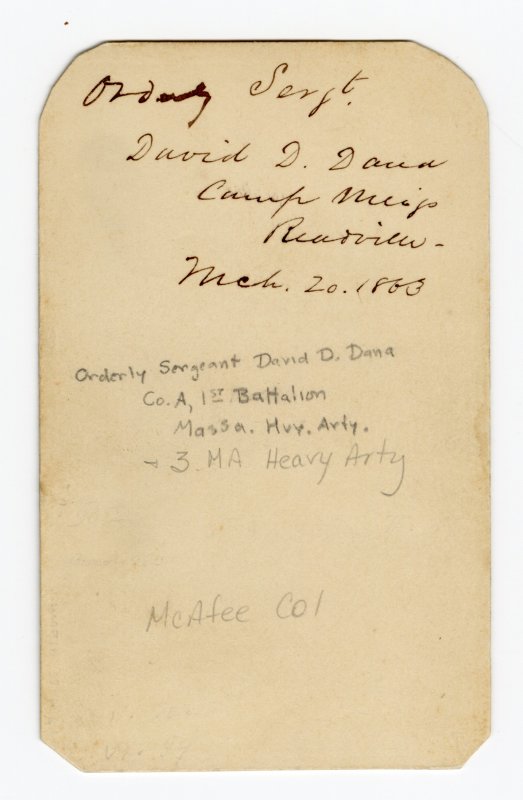 Orderly Sergt.
David D. Dana
Camp Meigs
Readville -
Mch. 20. 1863
Orderly Sergeant David D. Dana
Co. A, 1ST Battalion
Massa. Hvy. Arty.
→ 3. MA Heavy Arty
McAfee Col